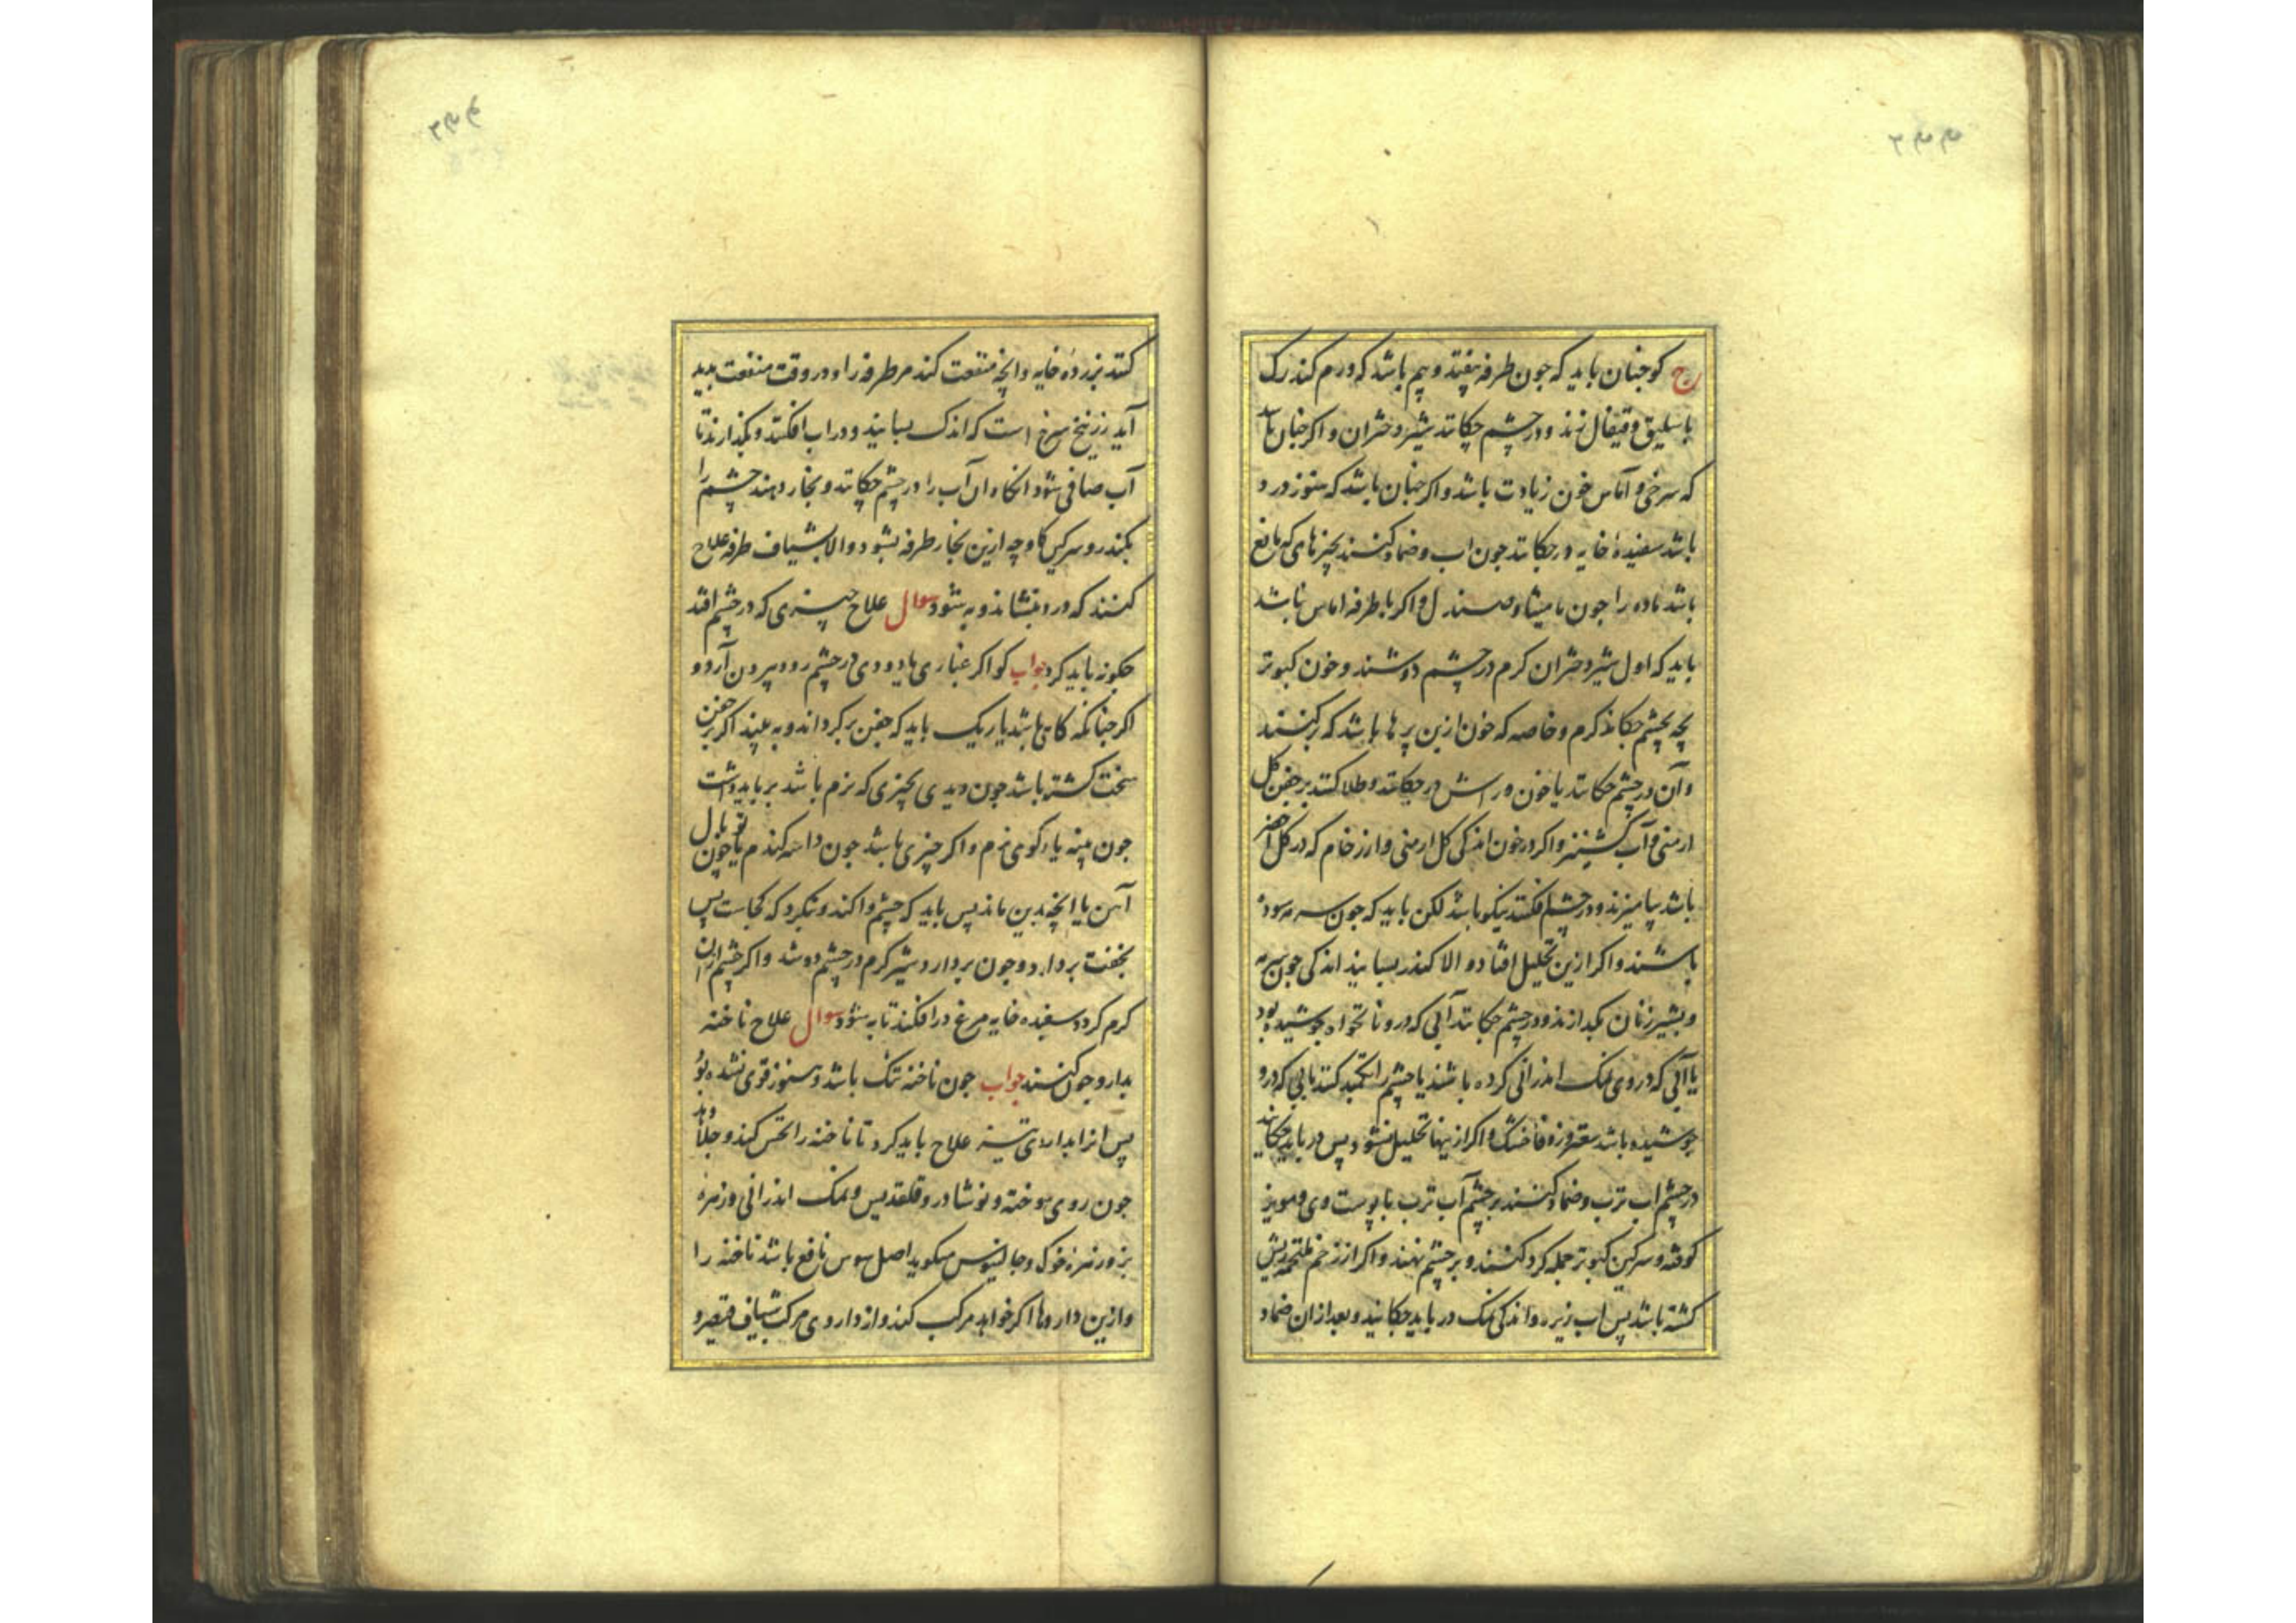 ج کو جنان باید که جون طرفه بیفتد و بیم باشد که ورم کند رک
باسلیق و قیفال زنند و در چشم چکانند شیر دختران و اکر جنان باشد
که سرخی و آماس خون زیادت باشد و اکر جنان باشد که هنوز درد
باشد سفیدهٔ خایه در چکانند جون اب و ضماد کنند بچیزهای که مانع
باشد ماده را جون مامیثا و صندل و اکر با طرفه اماس نباشد
باید که اول شیر دختران کرم در چشم دوشند و خون کبوتر
بچه بچشم چکانند کرم و خاصه که خون ازین پرها باشد که برکنند
و آن در چشم چکانند یا خون وراشین در چکانند و طلا کنند بر جفن کل
ارمنی و آب کشنیز و اکر در خون اندکی کل ارمنی و ارزخام که در کل
باشد بیامیزند و در چشم افکنند نیکو باشد لکن باید که جون سرمه سوده
باشند و اکر ازین تحلیل افتاد و الا کندر بسایند اندکی جون سرمه
و بشیر زنان بکدازند و در چشم چکانند آبی که درو نانخواه جوشیده بود
یا آبی که در وی نمک اندرانی کرده باشند یا چشم را تکمید کنند بابی که درو
جوشیده باشد سعتر و زوفا خشک و اکر ازینها تحلیل نشود پس در باید چکانید
در چشم اب ترب و ضماد کنند بر چشم آب ترب با پوست وی و مویز
کوفته و سرکین کبوتر جمله کرد کنند و بر چشم نهند و اکر از زخم ملتحمه ریش
کشته باشد پس اب زیره و اندکی نمک در باید چکانید و بعد از ان ضماد
کنند بزردهٔ خایه و انچه منفعت کند مر طرفه را و در وقت منفعت بدید
آید زرنیخ سرخ است که اندک بسایند و در اب افکنند و بکذارند تا
آب صافی شود انکاه ان آب را در چشم چکانند و بخار دهند چشم را
بکندر و سرکین کاو چه ازین بخار طرفه بشود و الا بشیاف طرفه علاج
کنند که درد بنشاند و به شود سوال علاج چیزی که در چشم افتد
جکونه باید کرد جواب کو اکر غباری یا دودی در چشم رود بیرون آرد و
اکر جنانکه کاهی باشد باریک باید که جفن برکرداند و به بیند اکر بر جفن
سخت کشته باشد جون دیدی بچیزی که نرم باشد بر باید داشت
جون پنبه یا رکوی نرم و اکر چیزی باشد جون داسه کندم یا جون توبال
آهن یا انچه بدین ماند پس باید که چشم وا کند و بنکرد که کجاست پس
بخفت بردارد و جون بردارد شیر کرم در چشم دوشد و اکر چشم از ان
کرم کردد سفیده خایه مرغ در افکند تا به شود سوال علاج ناخنه
بدارو جون کنند جواب جون ناخنه تنک باشد و هنوز قوی نشده بود
پس انرا بداروی تیز علاج باید کرد تا ناخنه را لختی کند و جلا دهد
جون روی سوخته و نوشادر و قلقدیس و نمک اندرانی و زهرهٔ
بز و زهرهٔ خوک و جالینوس میکوید اصل سوس نافع باشد ناخنه را
و ازین داروها اکر خواهد مرکب کند و از داروی مرکب شیاف قیصر و